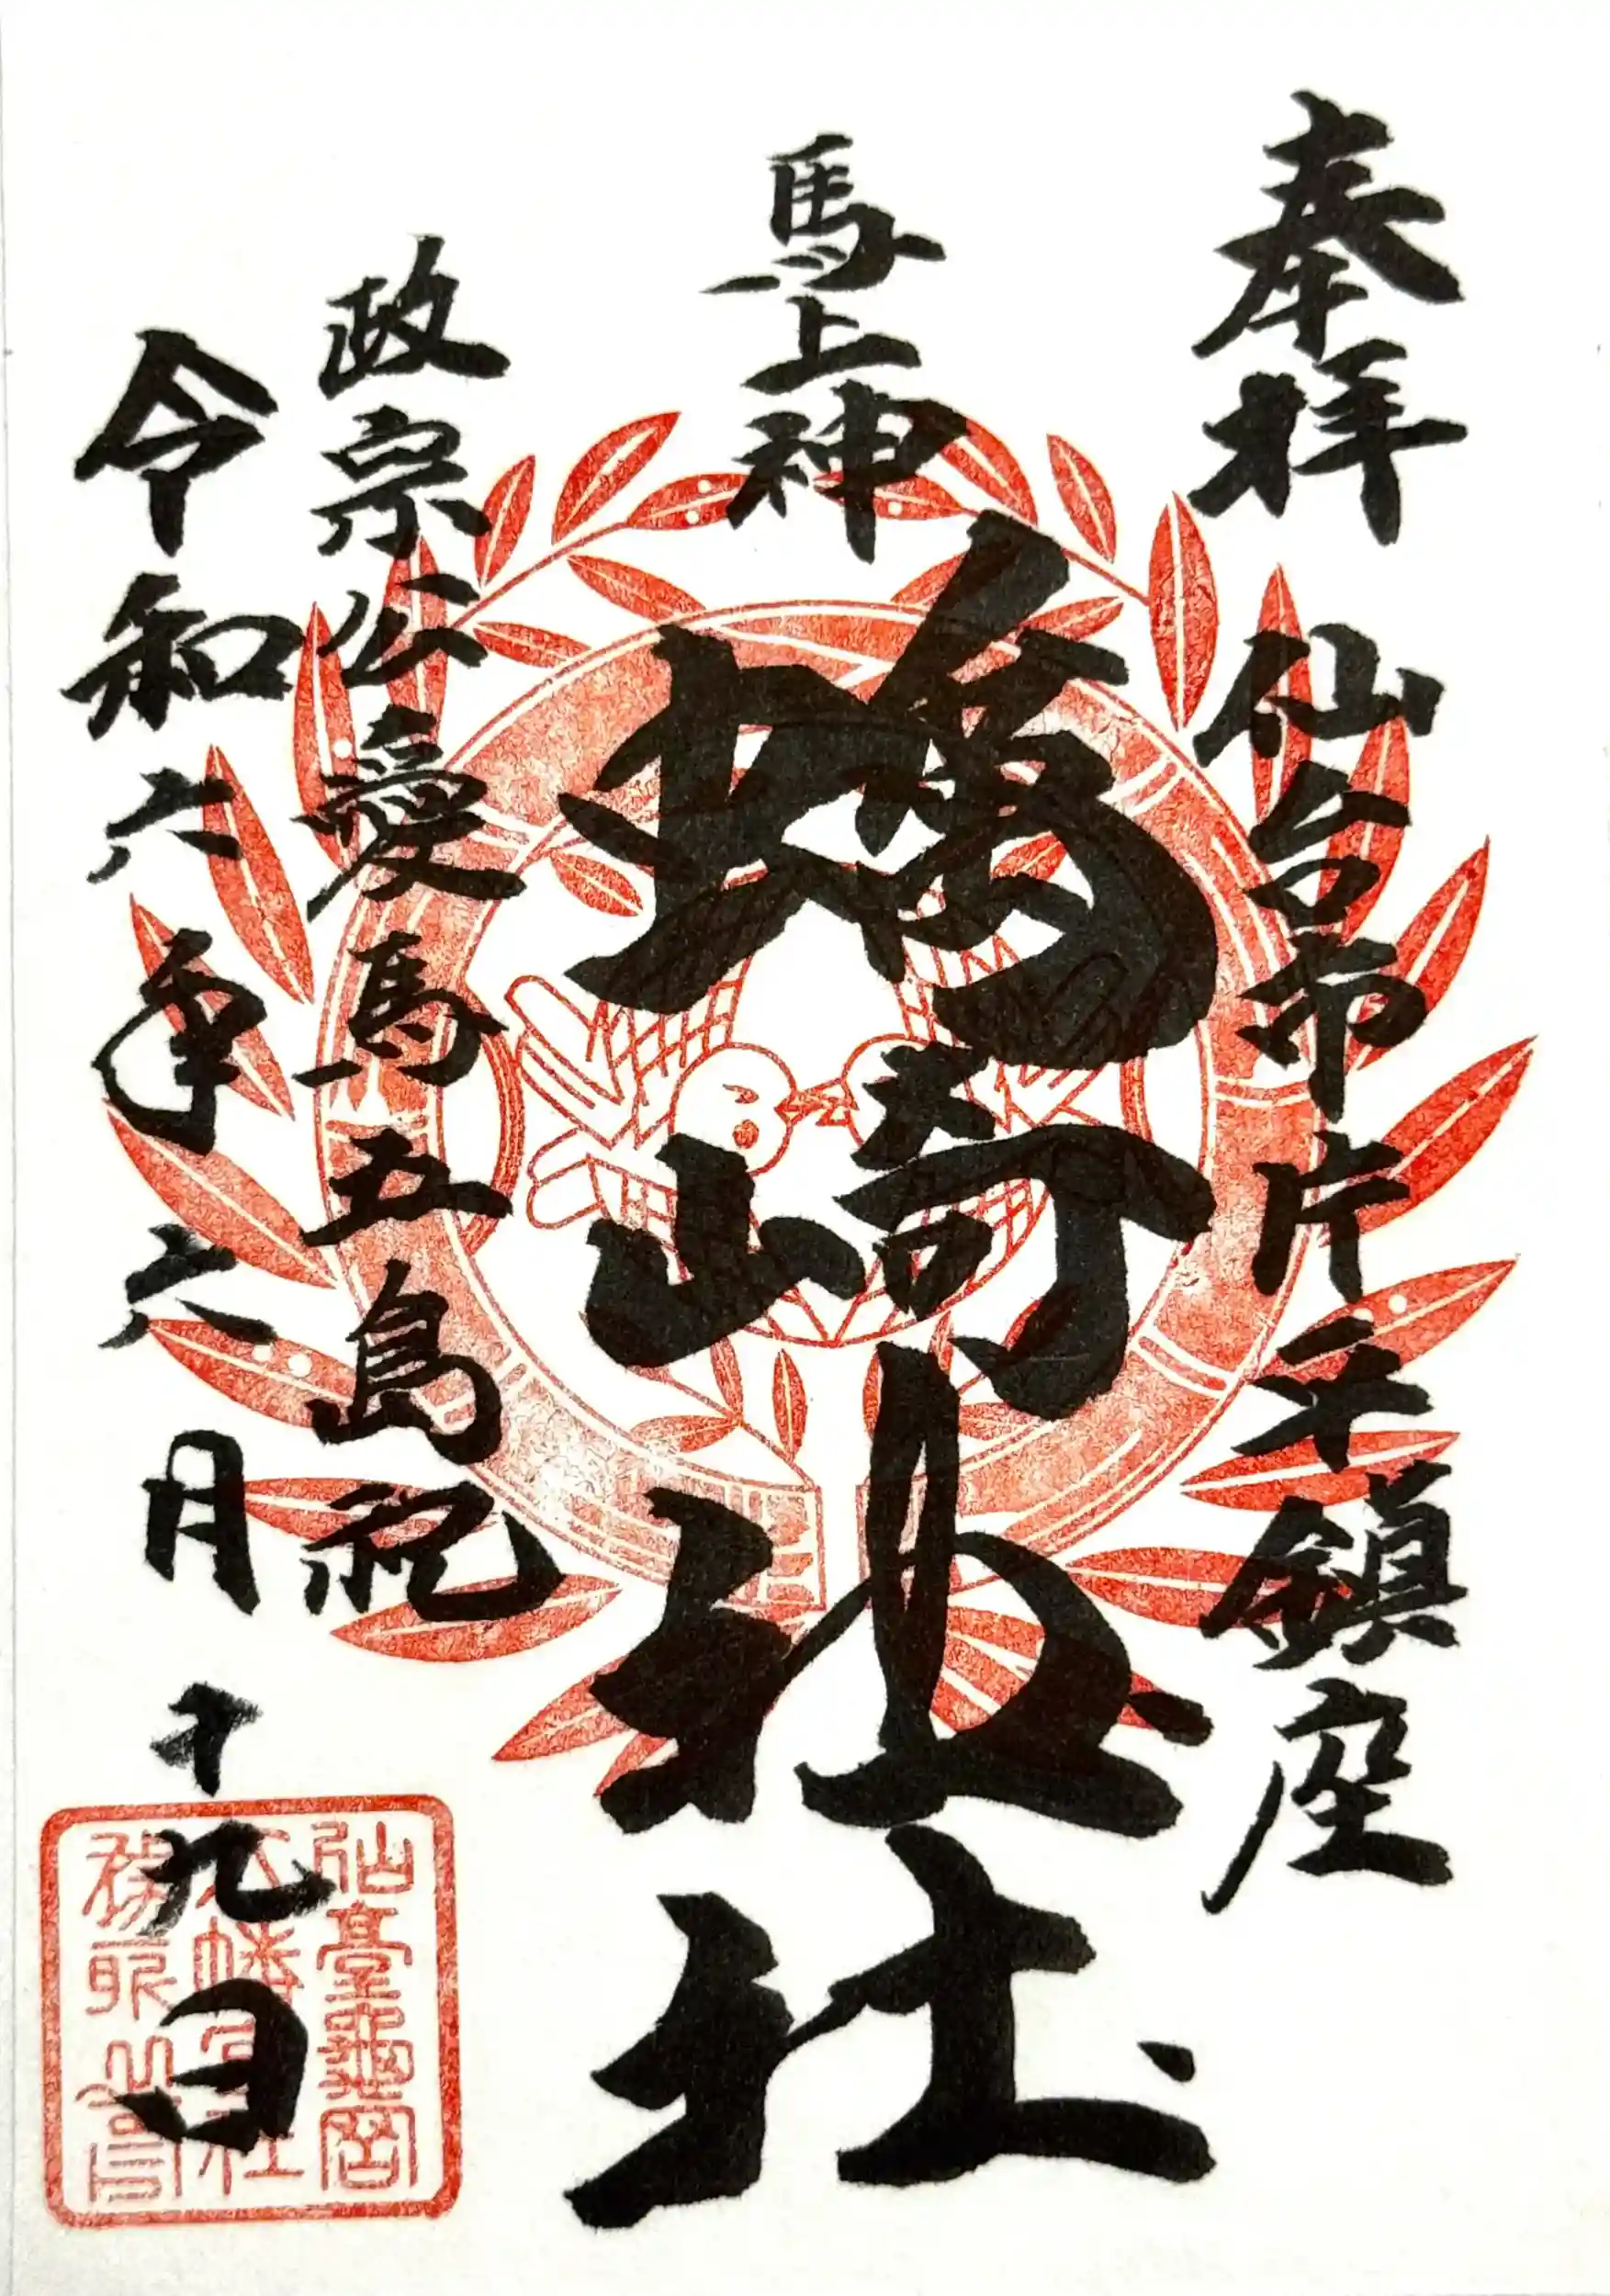 奉拝 仙台市片平鎮座
馬上神
蠣崎神社
政宗公愛馬五島祀
令和六年六月十九日
仙臺龜岡
八幡宮社
務所之